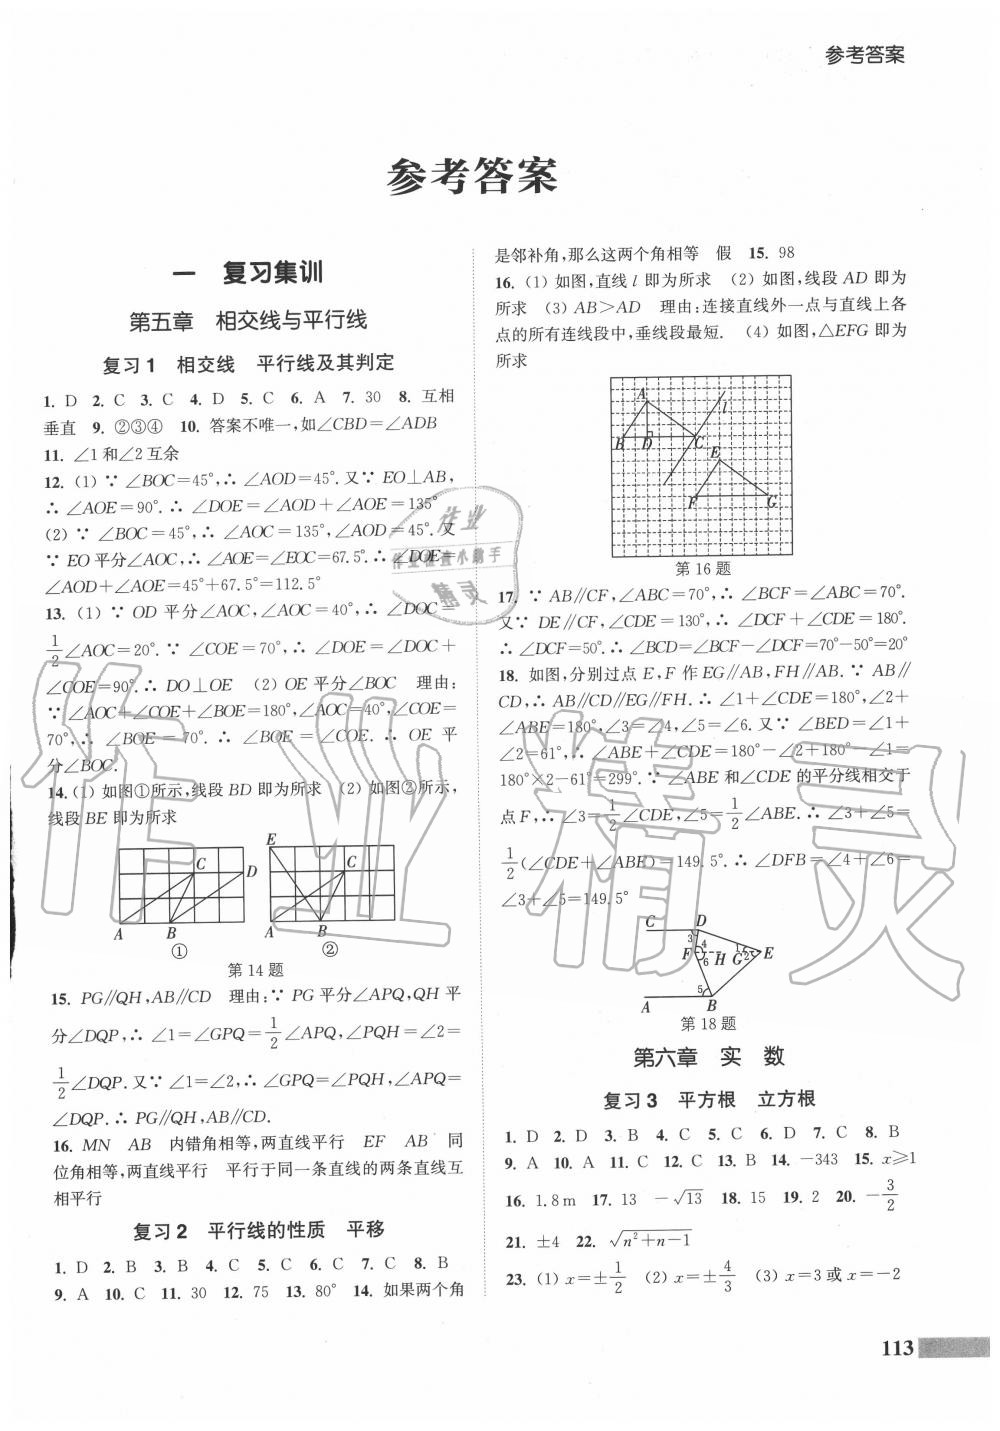 参考答案
参考答案
一 复习集训
第五章 相交线与平行线
复习1 相交线 平行线及其判定
1. D 2. C 3. C 4. D 5. C 6. A 7. 30 8. 互相
垂直 9. ②③④ 10. 答案不唯一,如∠CBD=∠ADB
11. ∠1和∠2互余
12. (1) ∵ ∠BOC=45°,∴ ∠AOD=45°. 又∵ EO⊥AB,
∴ ∠AOE=90°. ∴ ∠DOE=∠AOD+∠AOE=135°
(2) ∵ ∠BOC=45°,∴ ∠AOC=135°,∠AOD=45°. 又
∵ EO平分∠AOC,∴ ∠AOE=∠EOC=67.5°. ∴ ∠DOE=
∠AOD+∠AOE=45°+67.5°=112.5°
13. (1) ∵ OD 平分∠AOC,∠AOC=40°,∴ ∠DOC=
1/2∠AOC=20°. ∵ ∠COE=70°,∴ ∠DOE=∠DOC+
∠COE=90°. ∴ DO⊥OE (2) OE平分∠BOC 理由:
∵ ∠AOC+∠COE+∠BOE=180°,∠AOC=40°,∠COE=
70°,∴ ∠BOE=70°. ∴ ∠BOE=∠COE. ∴ OE 平
分∠BOC.
14. (1) 如图①所示,线段BD即为所求 (2) 如图②所示,
线段BE即为所求
C D A B ①
E C A B ②
第14题
15. PG∥QH,AB∥CD 理由:∵ PG平分∠APQ,QH平
分∠DQP,∴ ∠1=∠GPQ=1/2∠APQ,∠PQH=∠2=
1/2∠DQP. 又∵ ∠1=∠2,∴ ∠GPQ=∠PQH,∠APQ=
∠DQP. ∴ PG∥QH,AB∥CD.
16. MN AB 内错角相等,两直线平行 EF AB 同
位角相等,两直线平行 平行于同一条直线的两条直线互
相平行
复习2 平行线的性质 平移
1. D 2. B 3. B 4. C 5. C 6. C 7. C 8. B
9. A 10. C 11. 30 12. 75 13. 80° 14. 如果两个角
是邻补角,那么这两个角相等 假 15. 98
16. (1) 如图,直线l即为所求 (2) 如图,线段AD即为
所求 (3) AB>AD 理由:连接直线外一点与直线上各
点的所有连线段中,垂线段最短. (4) 如图,△EFG即为
所求
A l B D C E F G
第16题
17. ∵ AB∥CF,∠ABC=70°,∴ ∠BCF=∠ABC=70°.
又∵ DE∥CF,∠CDE=130°,∴ ∠DCF+∠CDE=180°.
∴ ∠DCF=50°. ∴ ∠BCD=∠BCF-∠DCF=70°-50°=20°
18. 如图,分别过点E,F作EG∥AB,FH∥AB. ∵ AB∥
CD,∴ AB∥CD∥EG∥FH. ∴ ∠1+∠CDE=180°,∠2+
∠ABE=180°,∠3=∠4,∠5=∠6. 又∵ ∠BED=∠1+
∠2=61°,∴ ∠ABE+∠CDE=180°-∠2+180°-∠1=
180°×2-61°=299°. ∵ ∠ABE和∠CDE的平分线相交于
点F,∴ ∠3=1/2∠CDE,∠5=1/2∠ABE. ∴ ∠3+∠5=
1/2(∠CDE+∠ABE)=149.5°. ∴ ∠DFB=∠4+∠6=
∠3+∠5=149.5°
C D 3 4 1 F 6 H G 2 E 5 A B
第18题
第六章 实 数
复习3 平方根 立方根
1. D 2. D 3. B 4. C 5. C 6. D 7. C 8. B
9. A 10. A 11. C 12. C 13. B 14. -343 15. x≥1
16. 1.8 m 17. 13 -√13 18. 15 19. 2 20. -3/2
21. ±4 22. √(n²+n-1)
23. (1) x=±1/2 (2) x=±4/3 (3) x=3或x=-2
113
作业
作业检查小助手
精灵
作业精灵